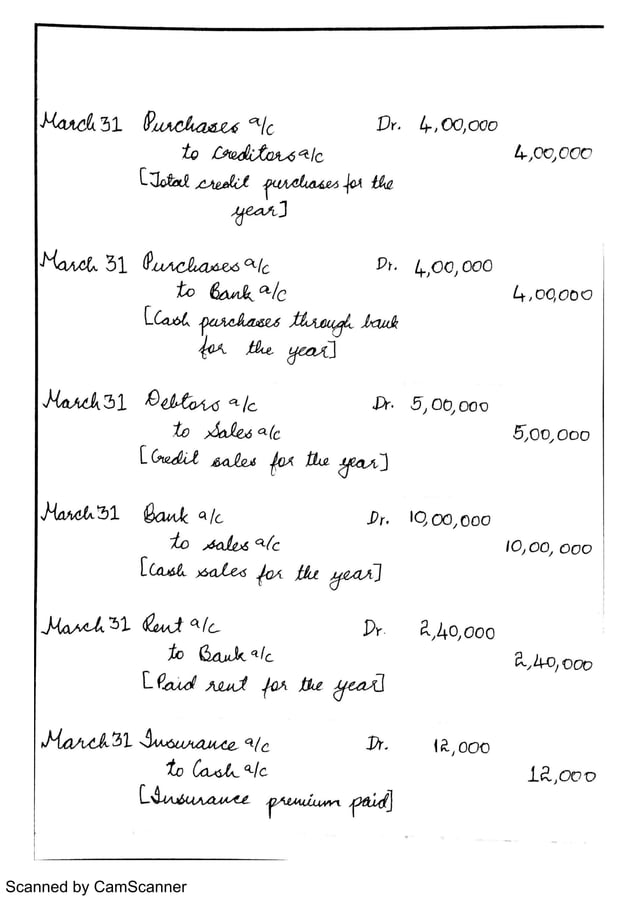 March 31 Purchases a/c Dr. 4,00,000
to Creditors a/c 4,00,000
[Total credit purchases for the
year]
March 31 Purchases a/c Dr. 4,00,000
to Bank a/c 4,00,000
[Cash purchases through bank
for the year]
March 31 Debtors a/c Dr. 5,00,000
to Sales a/c 5,00,000
[Credit sales for the year]
March 31 Bank a/c Dr. 10,00,000
to sales a/c 10,00,000
[Cash sales for the year]
March 31 Rent a/c Dr. 2,40,000
to Bank a/c 2,40,000
[Paid rent for the year]
March 31 Insurance a/c Dr. 12,000
to Cash a/c 12,000
[Insurance premium paid]
Scanned by CamScanner